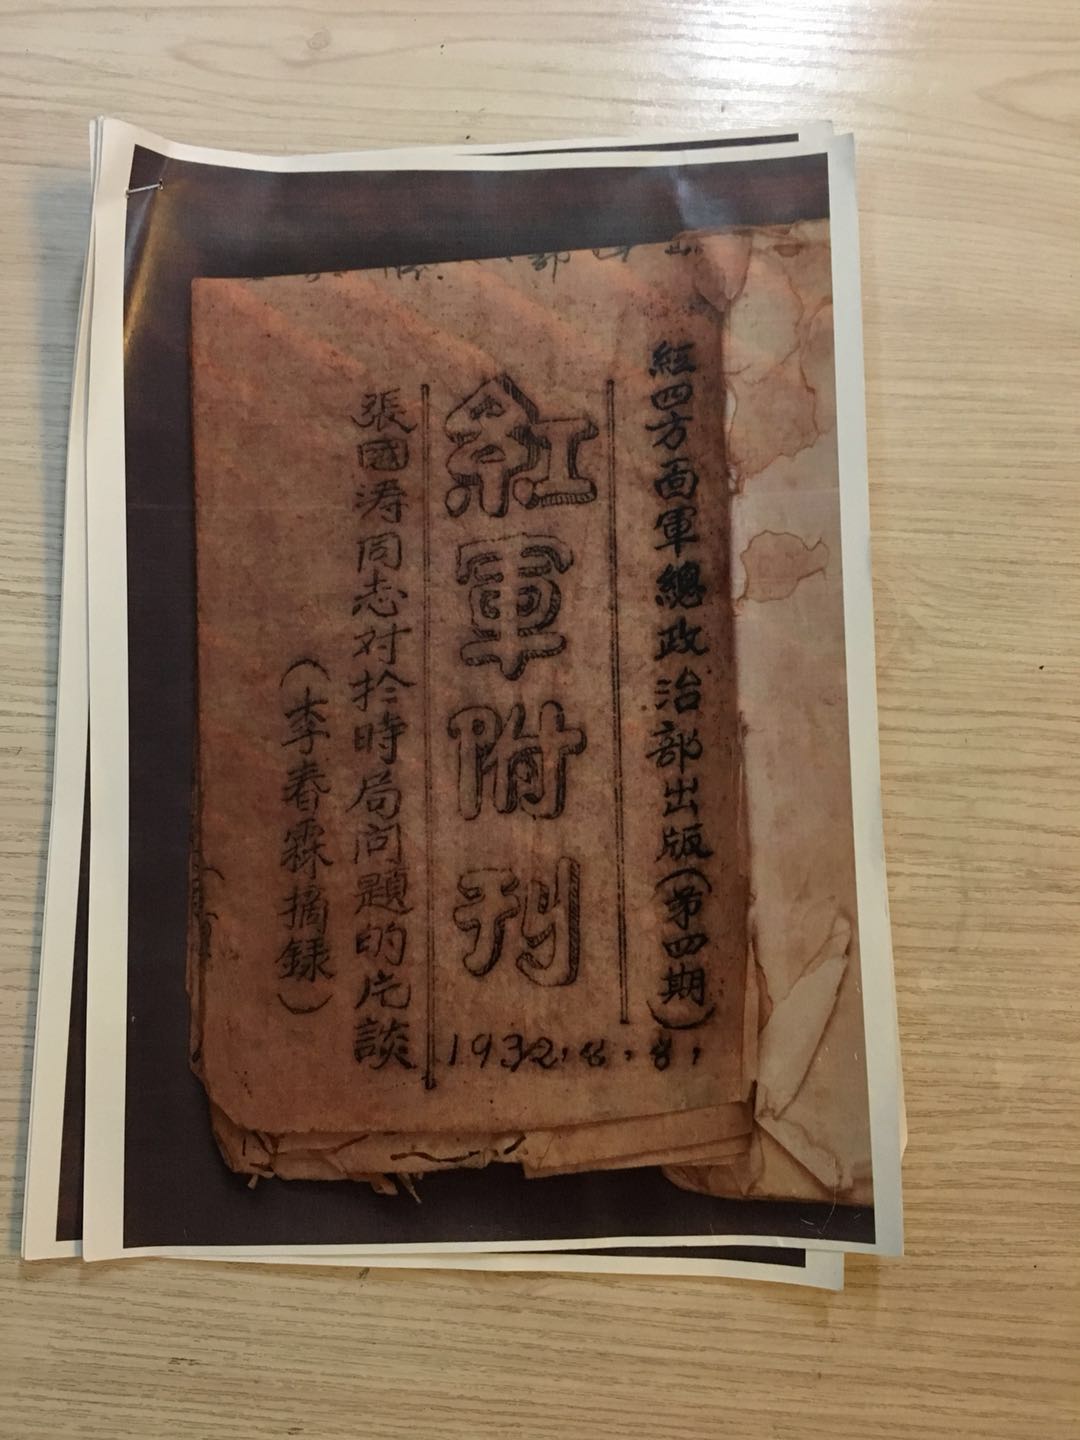 紅四方面軍總政治部出版(第四期)
紅軍附刊
1932.8.8,
張國涛同志对於時局问題的片談
(李春霖摘録)